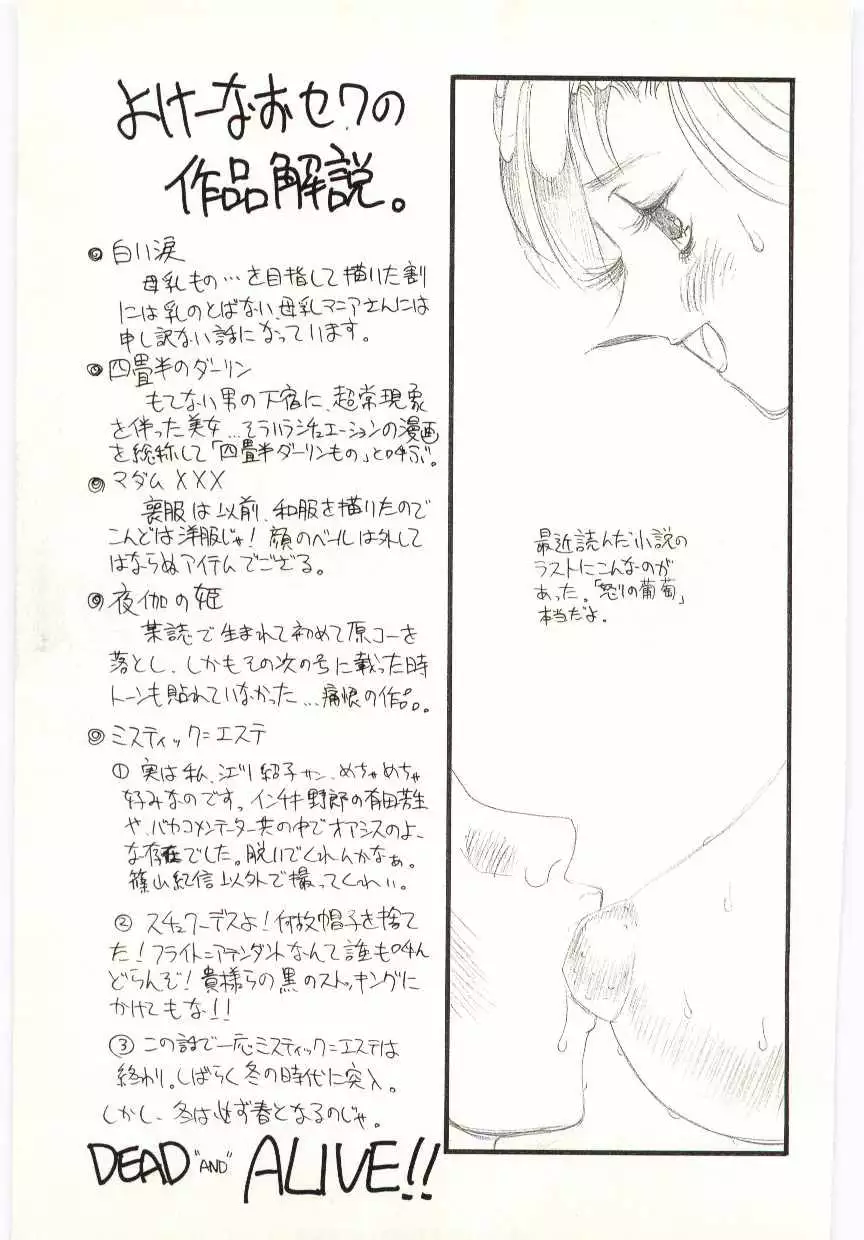 よけーなおセワの
作品解説。
◎白い涙
母乳もの…を目指して描いた割
には乳のとばない、母乳マニアさんには
申し訳ない話になっています。
◎四畳半のダーリン
もてない男の下宿に、超常現象
を伴った美女…そういうシチュエーションの漫画
を総称して「四畳半ダーリンもの」と呼ぶ。
◎マダムXXX
喪服は以前、和服を描いたので
こんどは洋服じゃ!顔のベールは外して
はならぬアイテムでござる。
◎夜伽の姫
某誌で生まれて初めて原コーを
落とし、しかもその次の号に載った時
トーンも貼れていなかった…痛恨の作品。
◎ミスティック=エステ
①実は私、江川紹子サン、めちゃめちゃ
好みなのです。インチキ野郎の有田芳生
や、バカコメンテーター共の中でオアシスのよー
な存在でした。脱いでくれんかなぁ。
篠山紀信以外で撮ってくれい。
②スチュワーデスよ!何故帽子を捨て
た!フライト=アテンダントなんて誰も呼ん
どらんぞ!貴様らの黒のストッキングに
かけてもな!!
③この話で一応ミスティック=エステは
終わり。しばらく冬の時代に突入。
しかし、冬は必ず春となるのじゃ。
DEAD "AND" ALIVE!!
最近読んだ小説の
ラストにこんなのが
あった。「怒りの葡萄」
本当だよ。